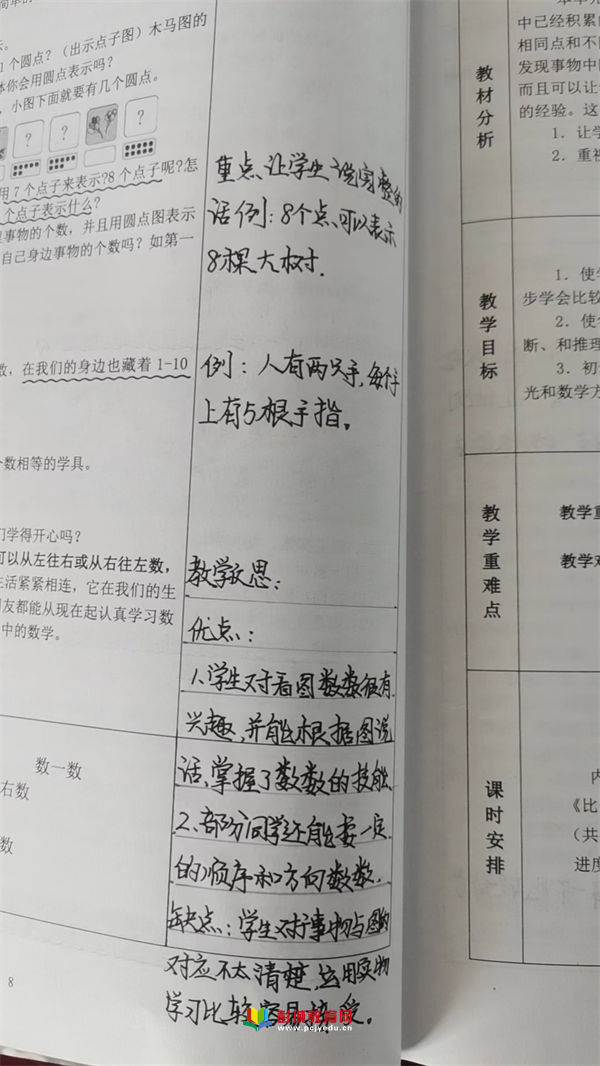 1 个圆点？（出示点子图）木马图的
体你会用圆点表示吗？
，小图下面就要有几个圆点。
? ?
用 7 个点子来表示?8 个点子呢?怎
个点子表示什么?
事物的个数，并且用圆点图表示
自己身边事物的个数吗？如第一
重点、让学生说完整的
话例：8个点、可以表示
8棵大树.
数，在我们的身边也藏着 1-10
例：人有两只手,每个手
上有5根手指。
个数相等的学具。
们学得开心吗？
可以从左往右或从右往左数，
生活紧紧相连，它在我们的生
朋友都能从现在起认真学习数
中的数学。
教学反思：
优点：
1、学生对于看图数数很有
兴趣,并能根据图说
话,掌握了数数的技能.
2、部分同学还能按一定
的顺序和方向数数.
缺点：学生对于事物与图的
对应不太清楚,运用实物
学习比较容易接受。
数一数
右数
数
8
中已经积累的
相同点和不同
发现事物中
而且可以让
的经验。这
1．让学
2．重视
教材分析
1．使学
步学会比较
2．使学
断、和推理
3．初
光和数学方
教学目标
教学重
教学难
教学重难点
内
《比
（共
进度
课时安排
www.pcjyedu.cn